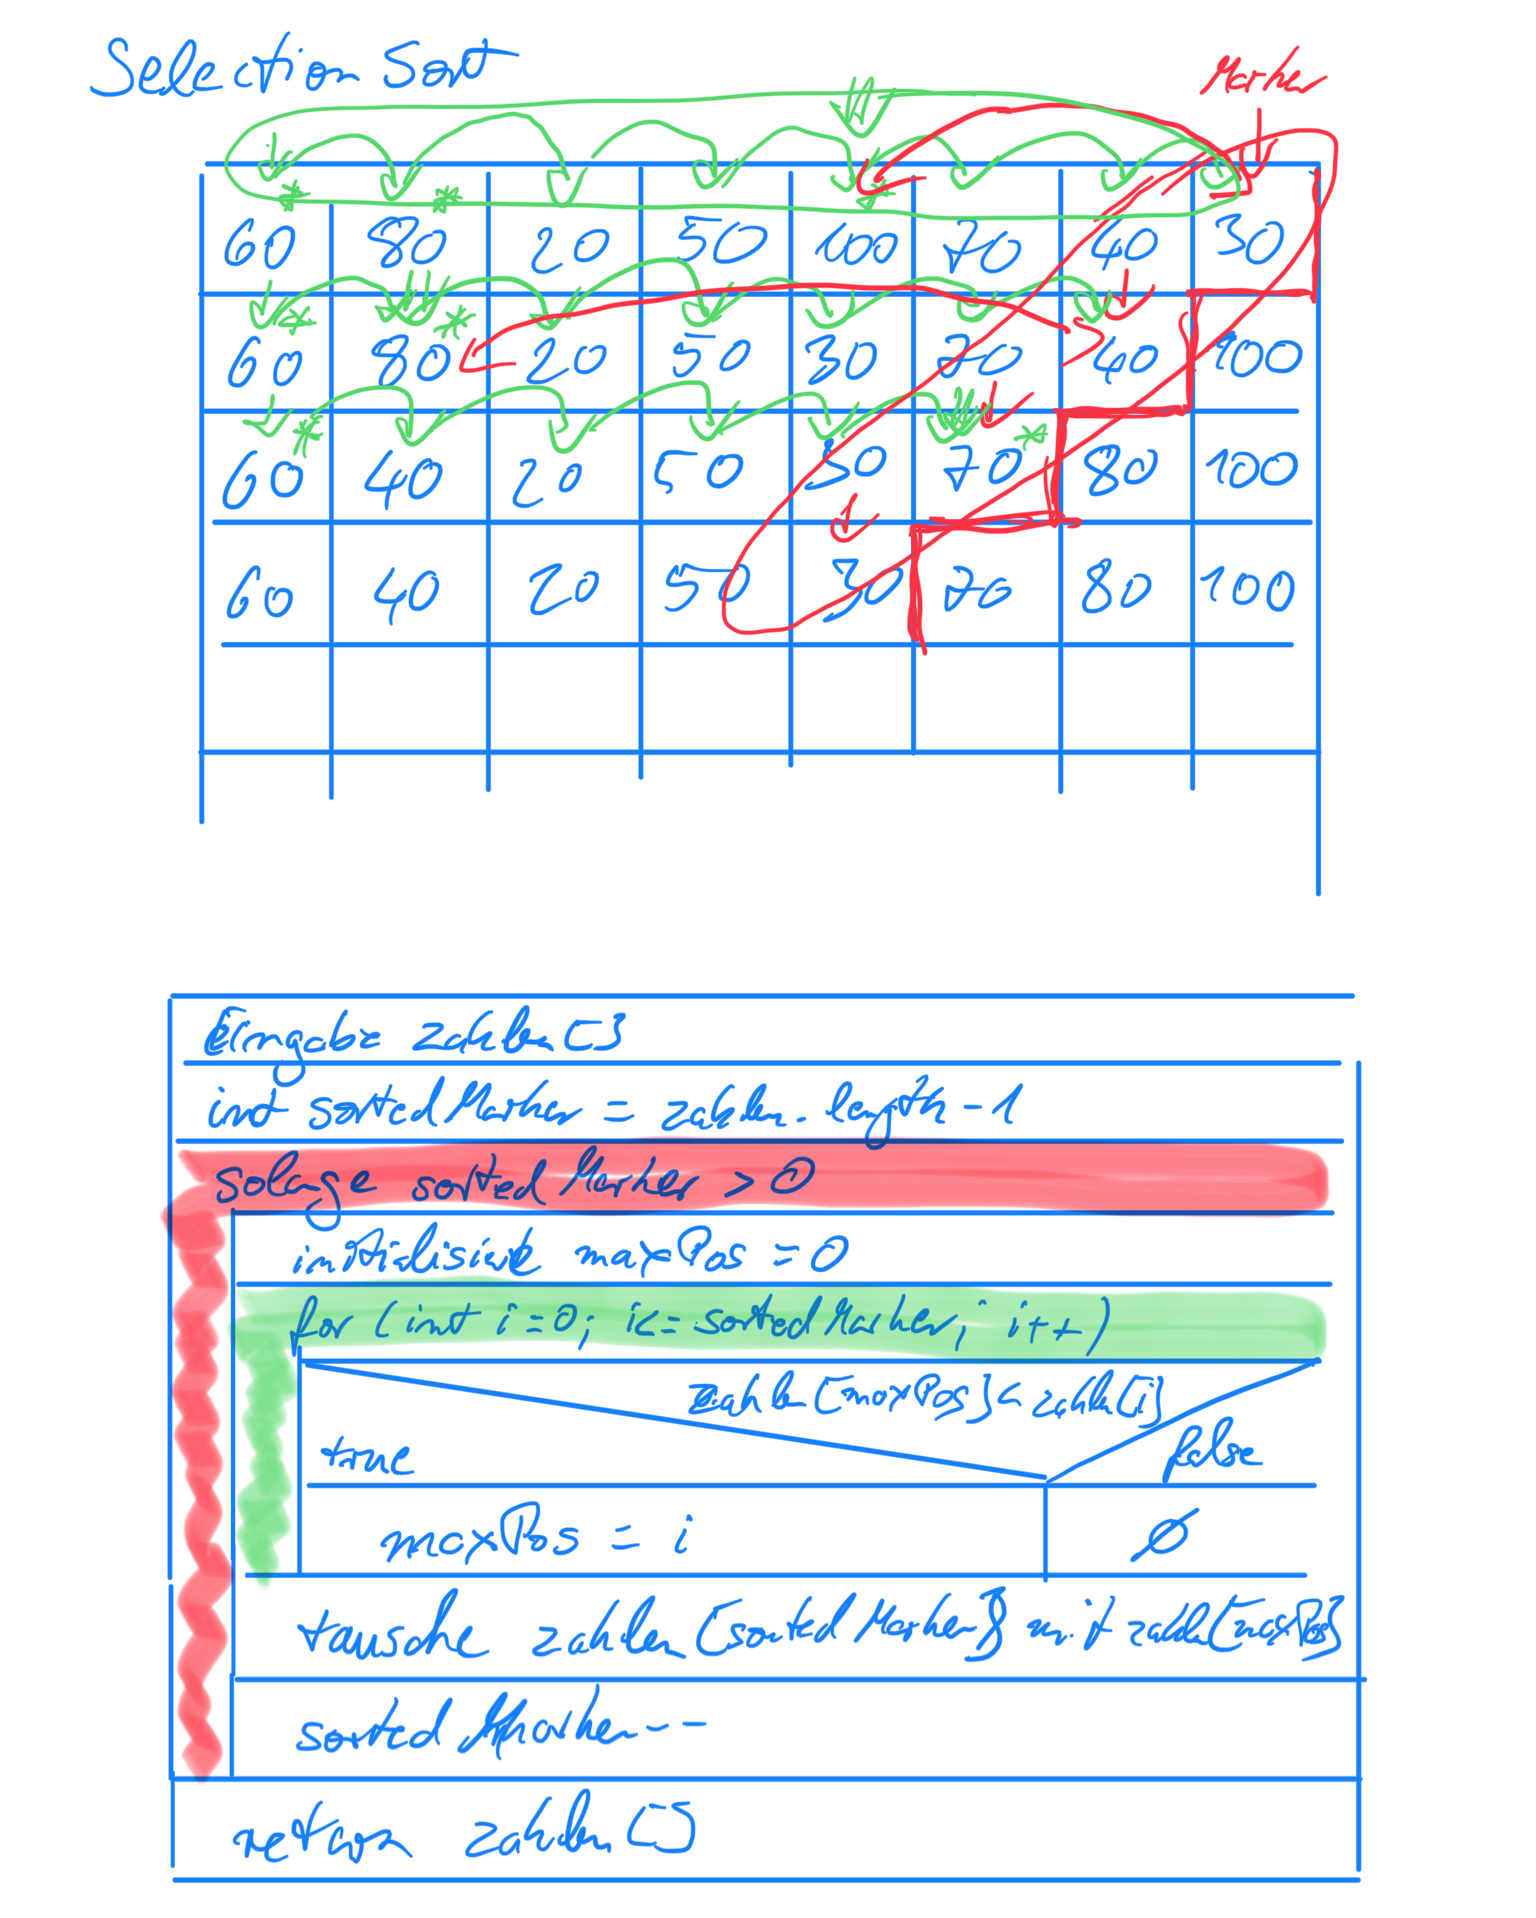 Selection Sort
Marker
60 80 20 50 100 70 40 30
60 80 20 50 30 70 40 100
60 40 20 50 30 70 80 100
60 40 20 50 30 70 80 100
Eingabe zahlen[]
int sortedMarker = zahlen.length-1
solange sortedMarker > 0
initialisiere maxPos = 0
for (int i=0; i<=sortedMarker; i++)
zahlen[maxPos] < zahlen[i]
true false
maxPos = i Ø
tausche zahlen[sortedMarker] mit zahlen[maxPos]
sortedMarker--
return zahlen[]